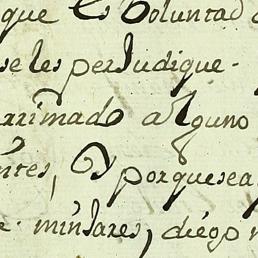 que es voluntad
se les perJudique.
arrimado alguno
ntes, y porquesea
minsares, diego